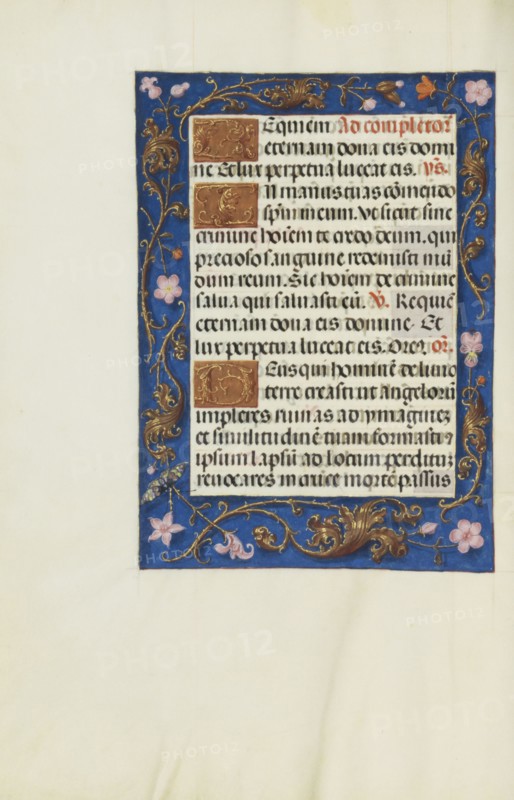 Requiem Ad completoꝝ
eternam dona eis domi
ne Et lux perpetua luceat eis. ỹs.
In manus tuas cōmendo
spūm meum. Vt sicut sine
crimine hoīem te credo deum. qui
precioso sanguine redemisti mū
dum reum. Sic hoīem de crimine
salua qui saluasti eū. ỹ. Requiē
eternam dona eis domine. Et
lux perpetua luceat eis. Orem⁹ or̄.
Deus qui hominē de limo
terre creasti ut angelorū
impleres ruinas ad ymaginē
et similitudinē tuam formasti ⁊
ipsum lapsū ad locum perditum
reuocares in cruce mortē passus
PHOTO12